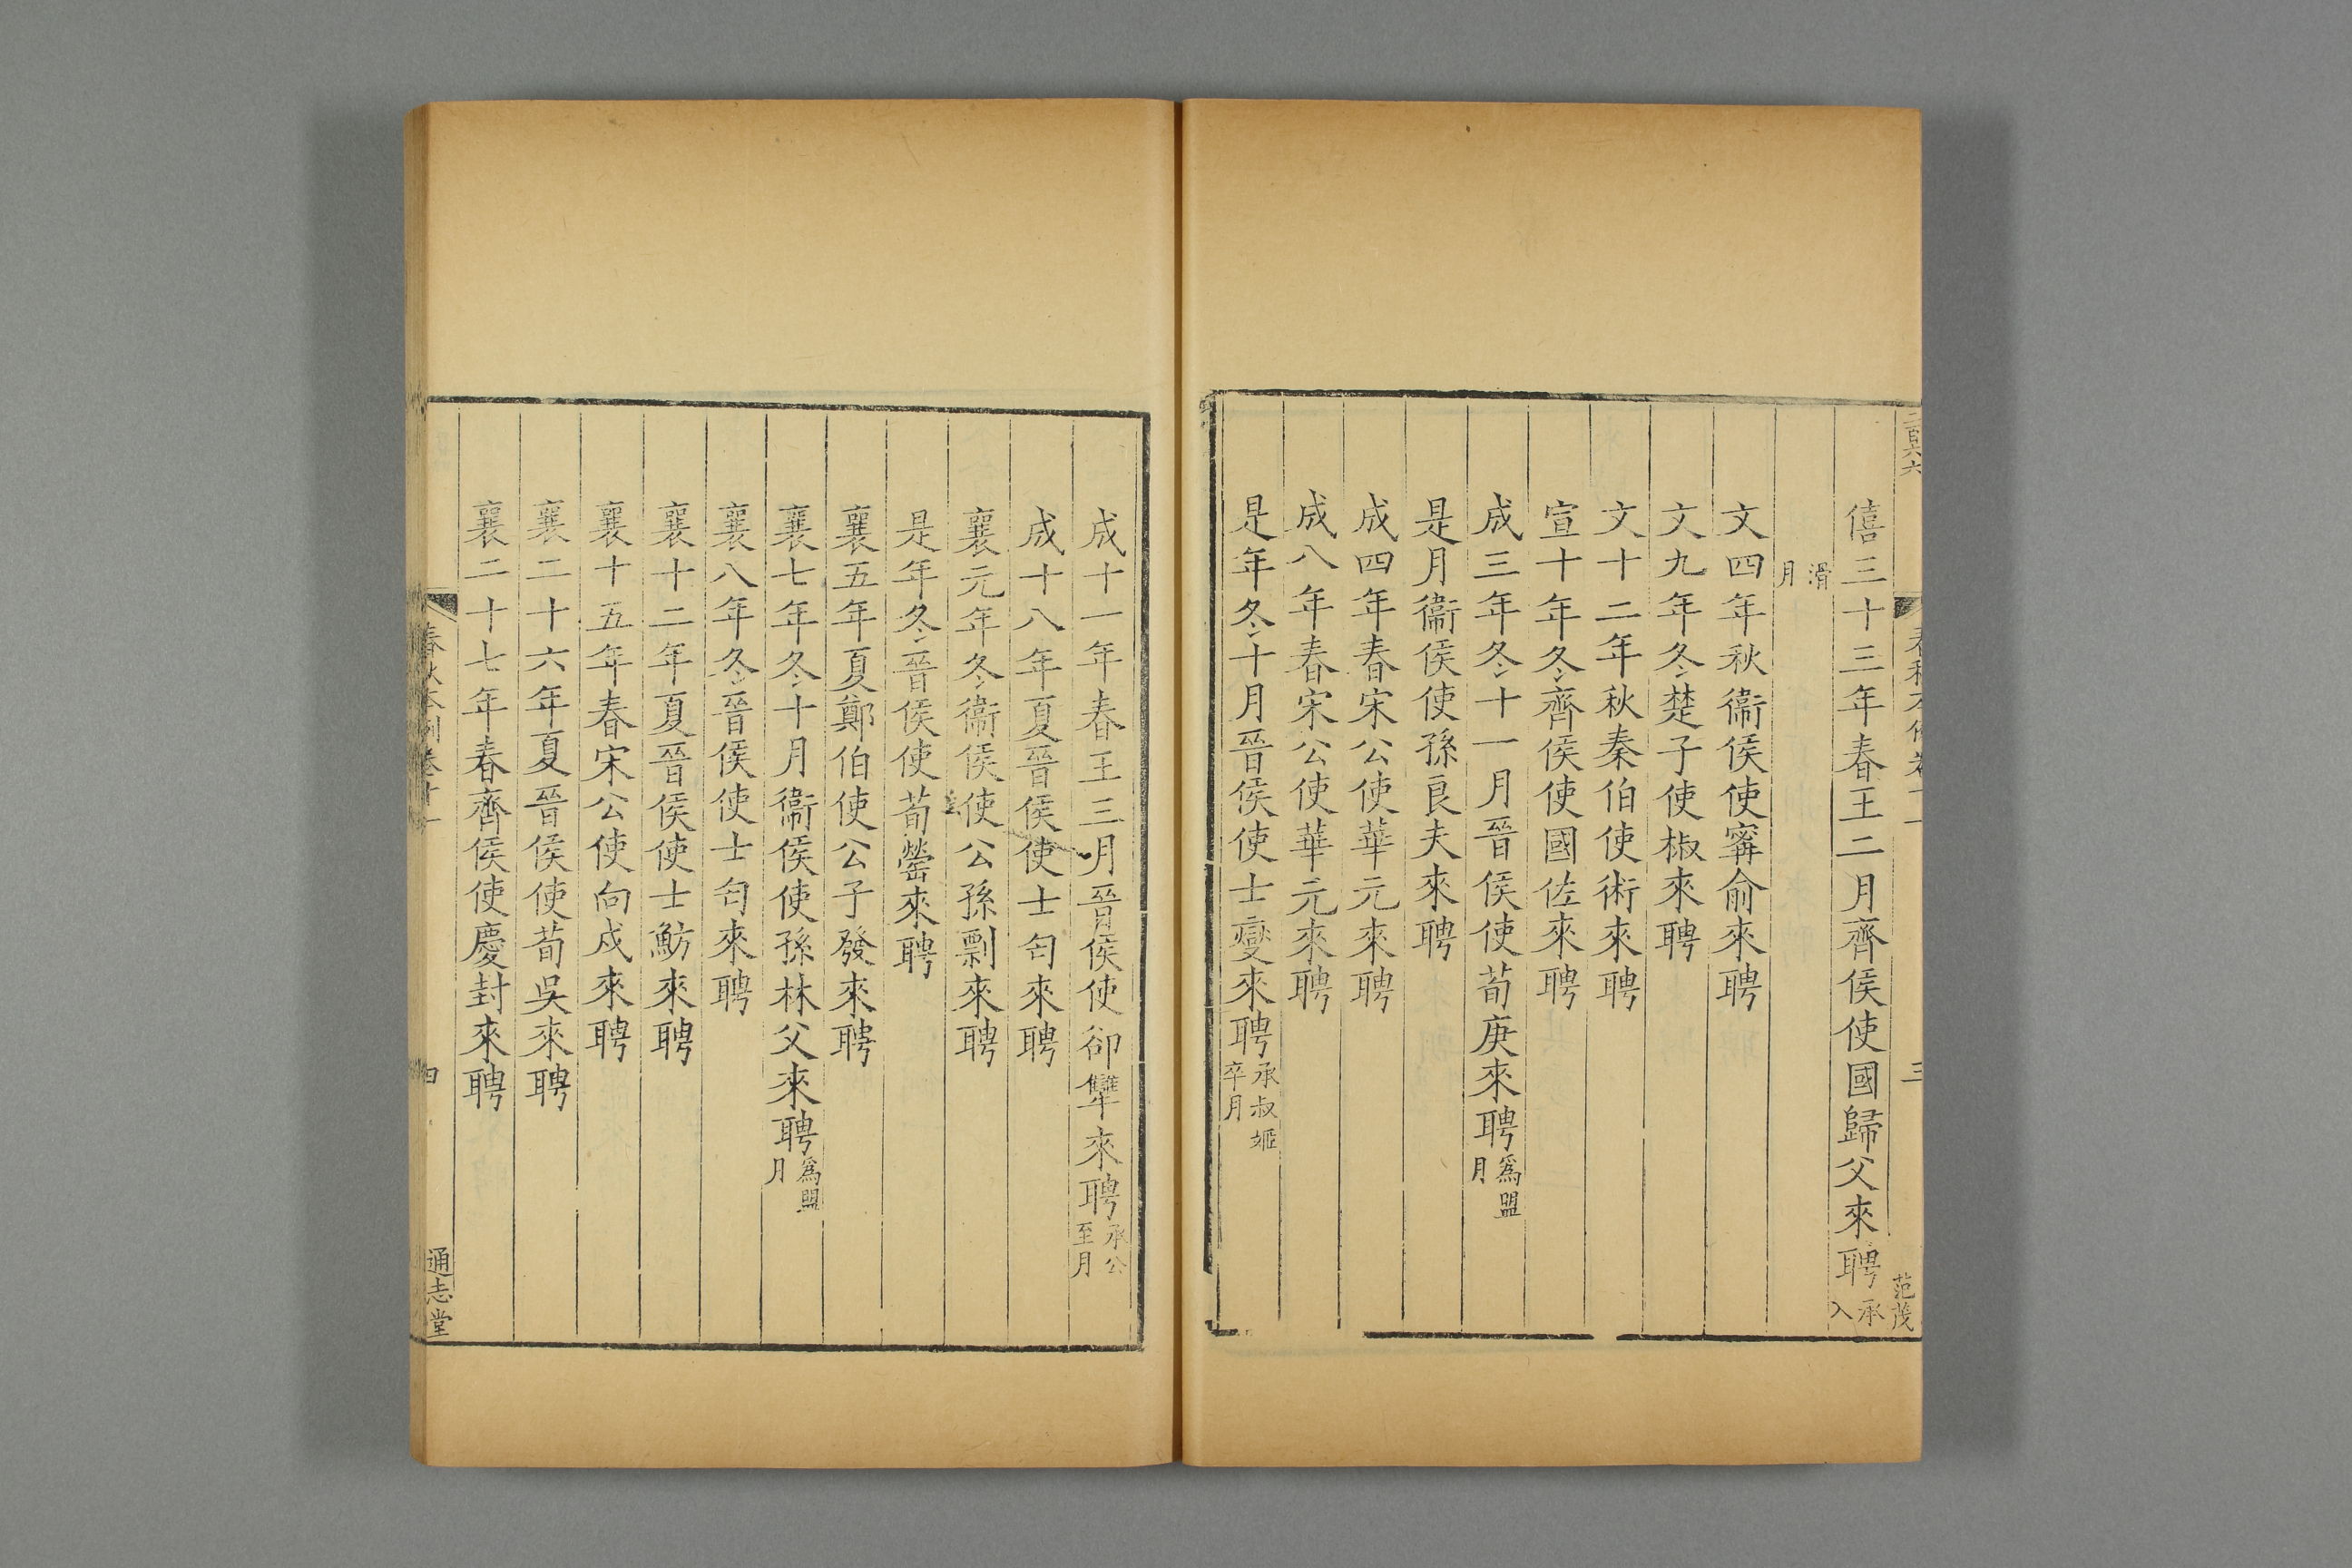 二百六六
春秋本例卷十一
三
范茂
僖三十三年春王二月齊侯使國歸父來聘承入
滑月
文四年秋衞侯使甯俞來聘
文九年冬楚子使椒來聘
文十二年秋秦伯使術來聘
宣十年冬齊侯使國佐來聘
成三年冬十一月晉侯使荀庚來聘爲盟月
是月衞侯使孫良夫來聘
成四年春宋公使華元來聘
成八年春宋公使華元來聘
是年冬十月晉侯使士燮來聘承叔姬卒月
成十一年春王三月晉侯使卻犫來聘承公至月
成十八年夏晉侯使士匄來聘
襄元年冬衞侯使公孫剽來聘
是年冬晉侯使荀罃來聘
襄五年夏鄭伯使公子發來聘
襄七年冬十月衞侯使孫林父來聘爲盟月
襄八年冬晉侯使士匄來聘
襄十二年夏晉侯使士魴來聘
襄十五年春宋公使向戍來聘
襄二十六年夏晉侯使荀吳來聘
襄二十七年春齊侯使慶封來聘
春秋本例卷十一
四
通志堂